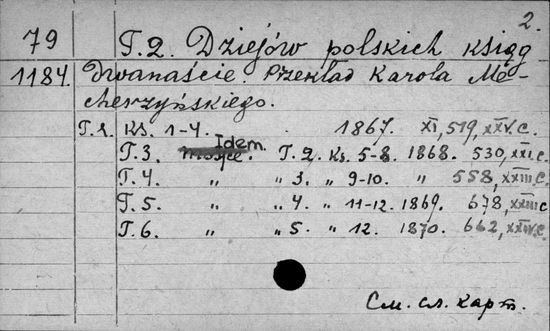 2.
79 Т.2. Dziejów polskich ksiąg
1184. dwanaście. Przekład Karola Me-
cherzyńskiego.
Т.1. Ks. 1-4. 1867. XI, 519, XXV. с.
Т.3. Idem. Т.2. Ks. 5-8. 1868. 530, XXI. с.
Т.4. „ „ 3. „ 9-10. „ 558, XXIII с.
Т.5. „ „ 4. „ 11-12. 1869. 678, XXIII с
Т.6. „ „ 5. „ 12. 1870. 662, XXIV. с.
См. сл. карт.